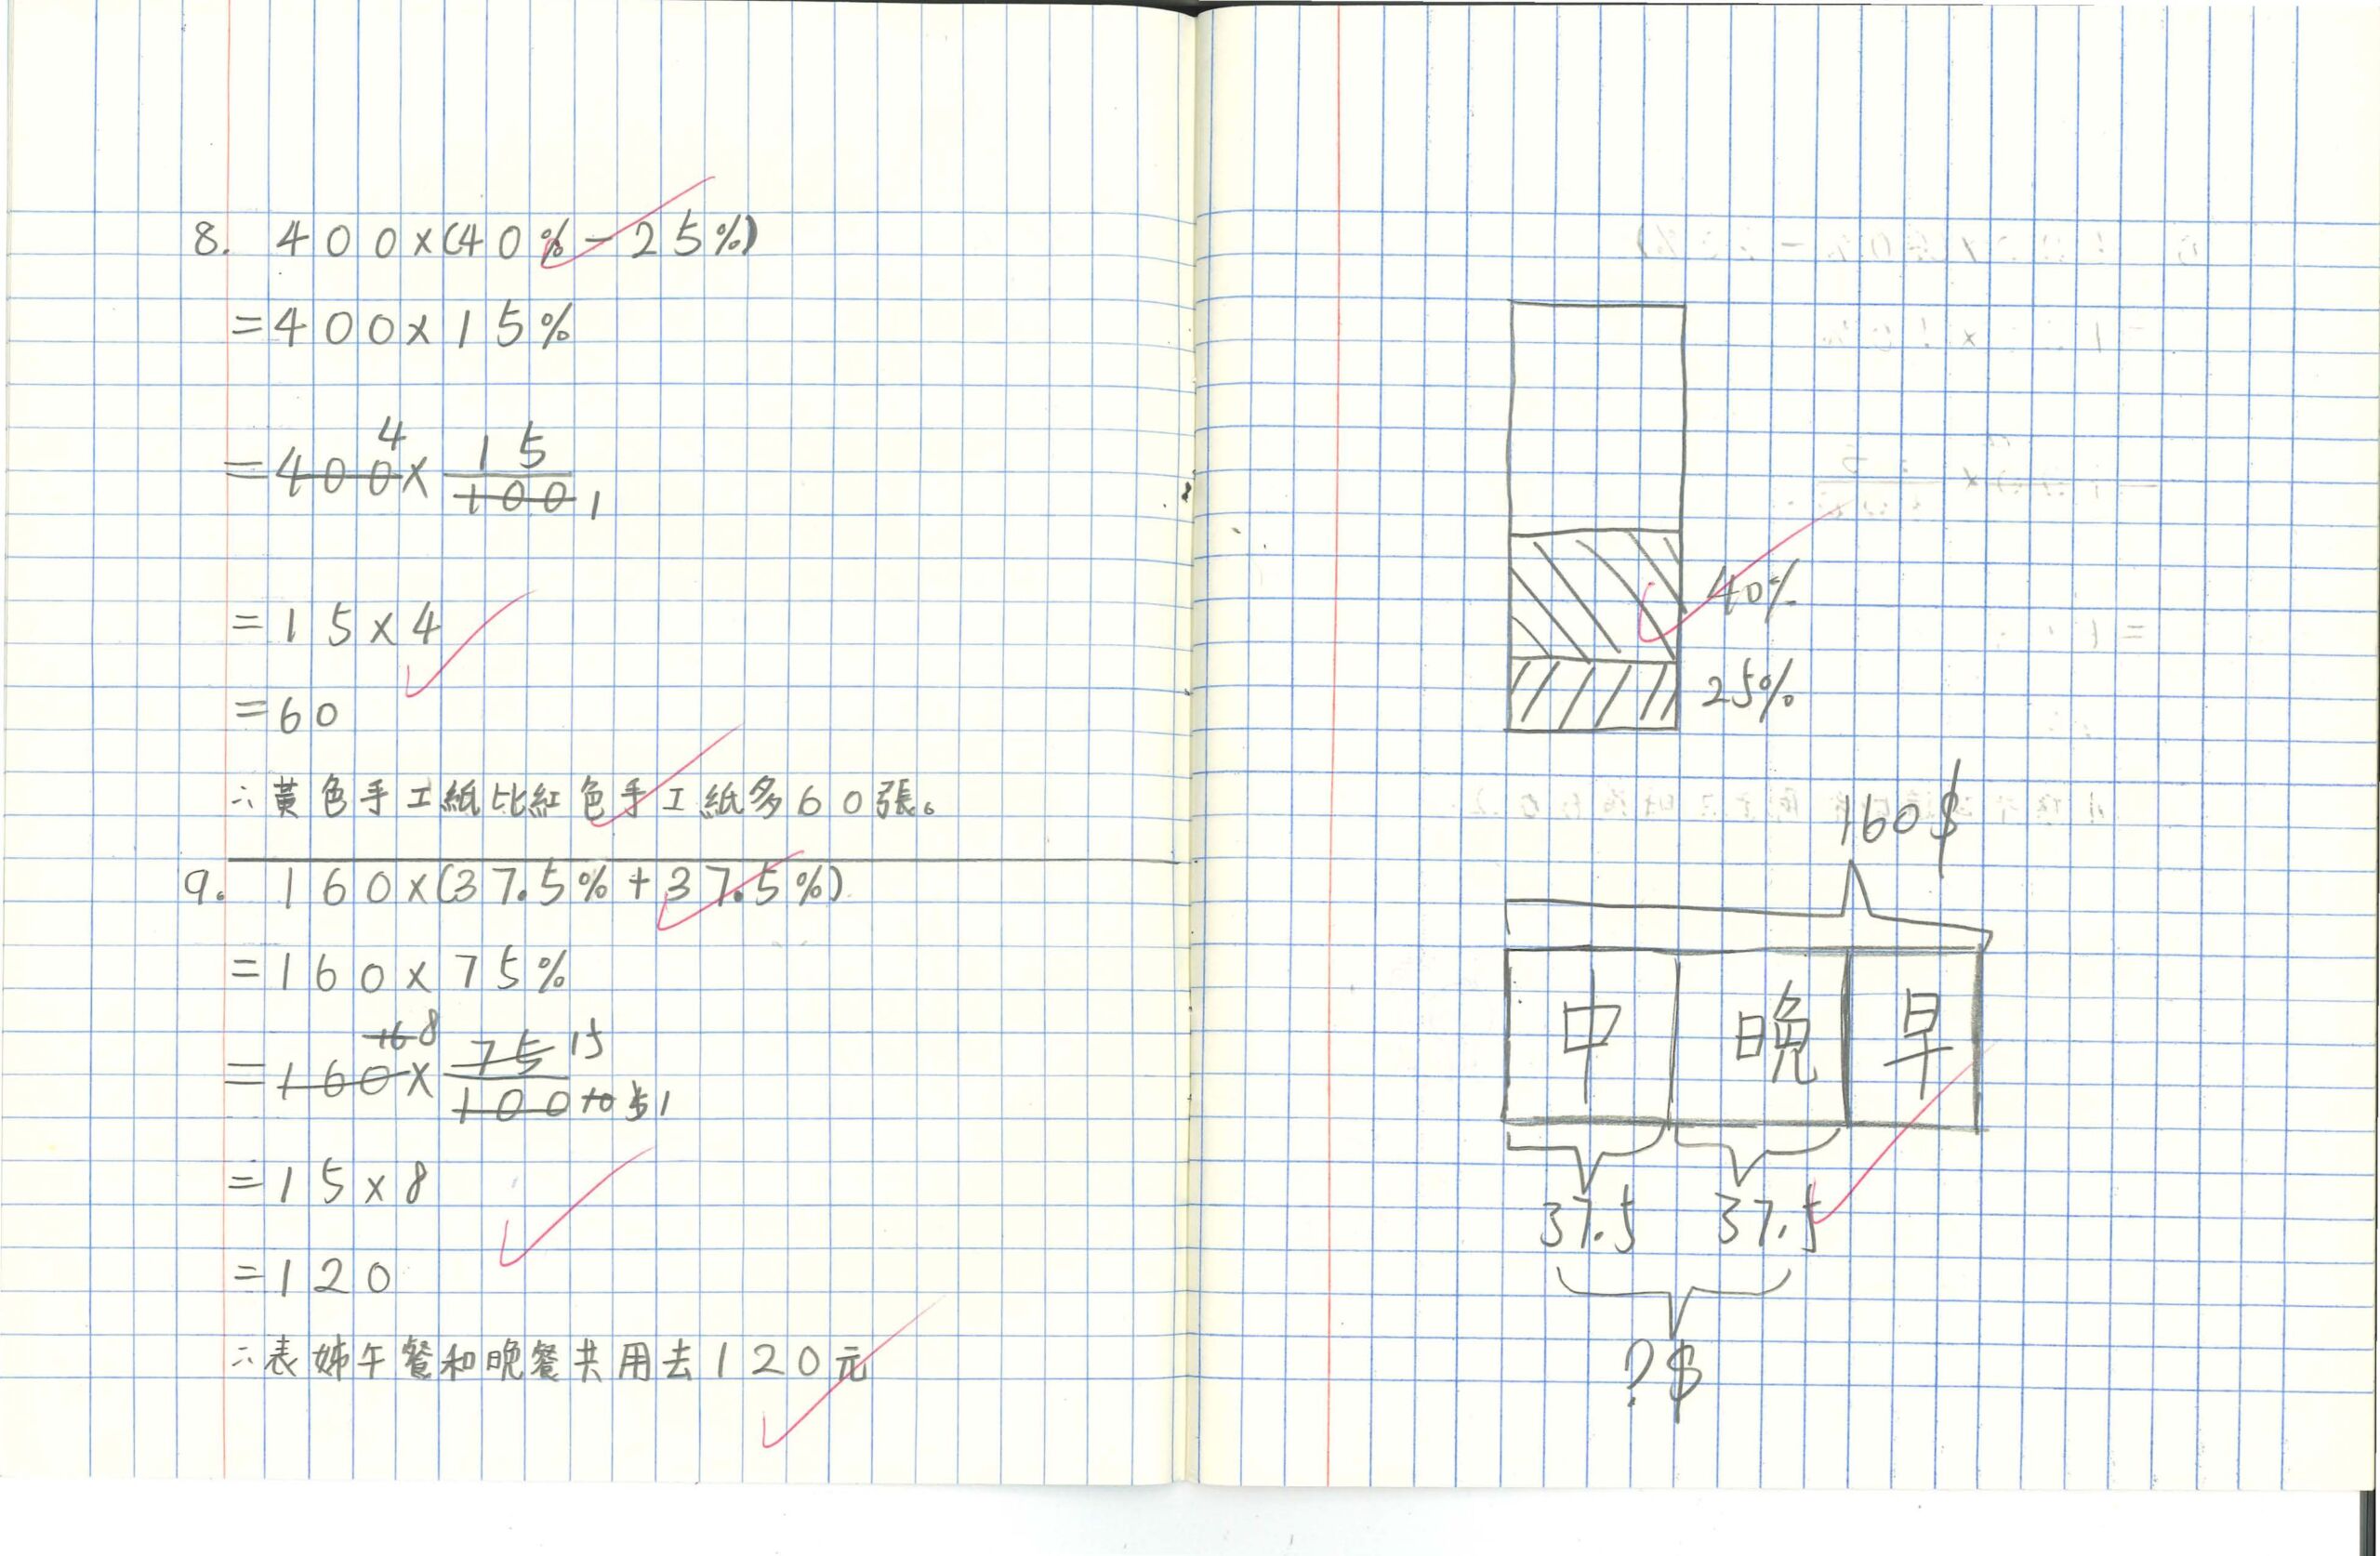 8. 400×(40%-25%)
=400×15%
=400 4 × 15/100 1
=15×4
=60
∴黃色手工紙比紅色手工紙多60張。
9. 160×(37.5%+37.5%)
=160×75%
=160 16 8 × 75 15/100 10 5 1
=15×8
=120
∴表姊午餐和晚餐共用去120元
40%
25%
160$
中 晚 早
37.5 37.5
?$